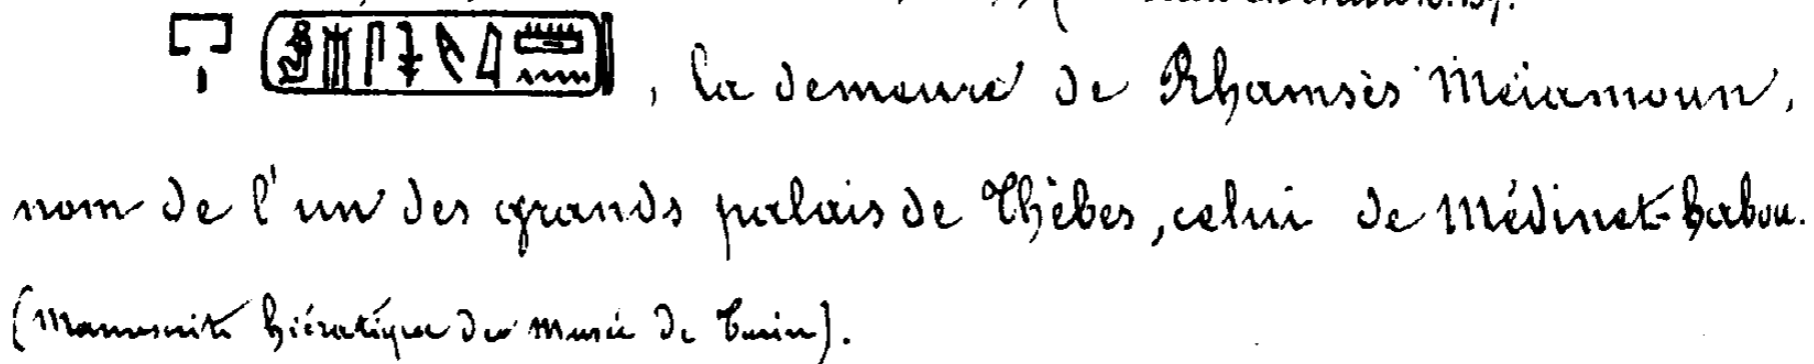 𓉐𓏤 , la demeure de Rhamsès Meïamoun,
nom de l'un des grands palais de Thèbes, celui de Médinet-habou.
(Manuscrit hiératique du musée de Turin).